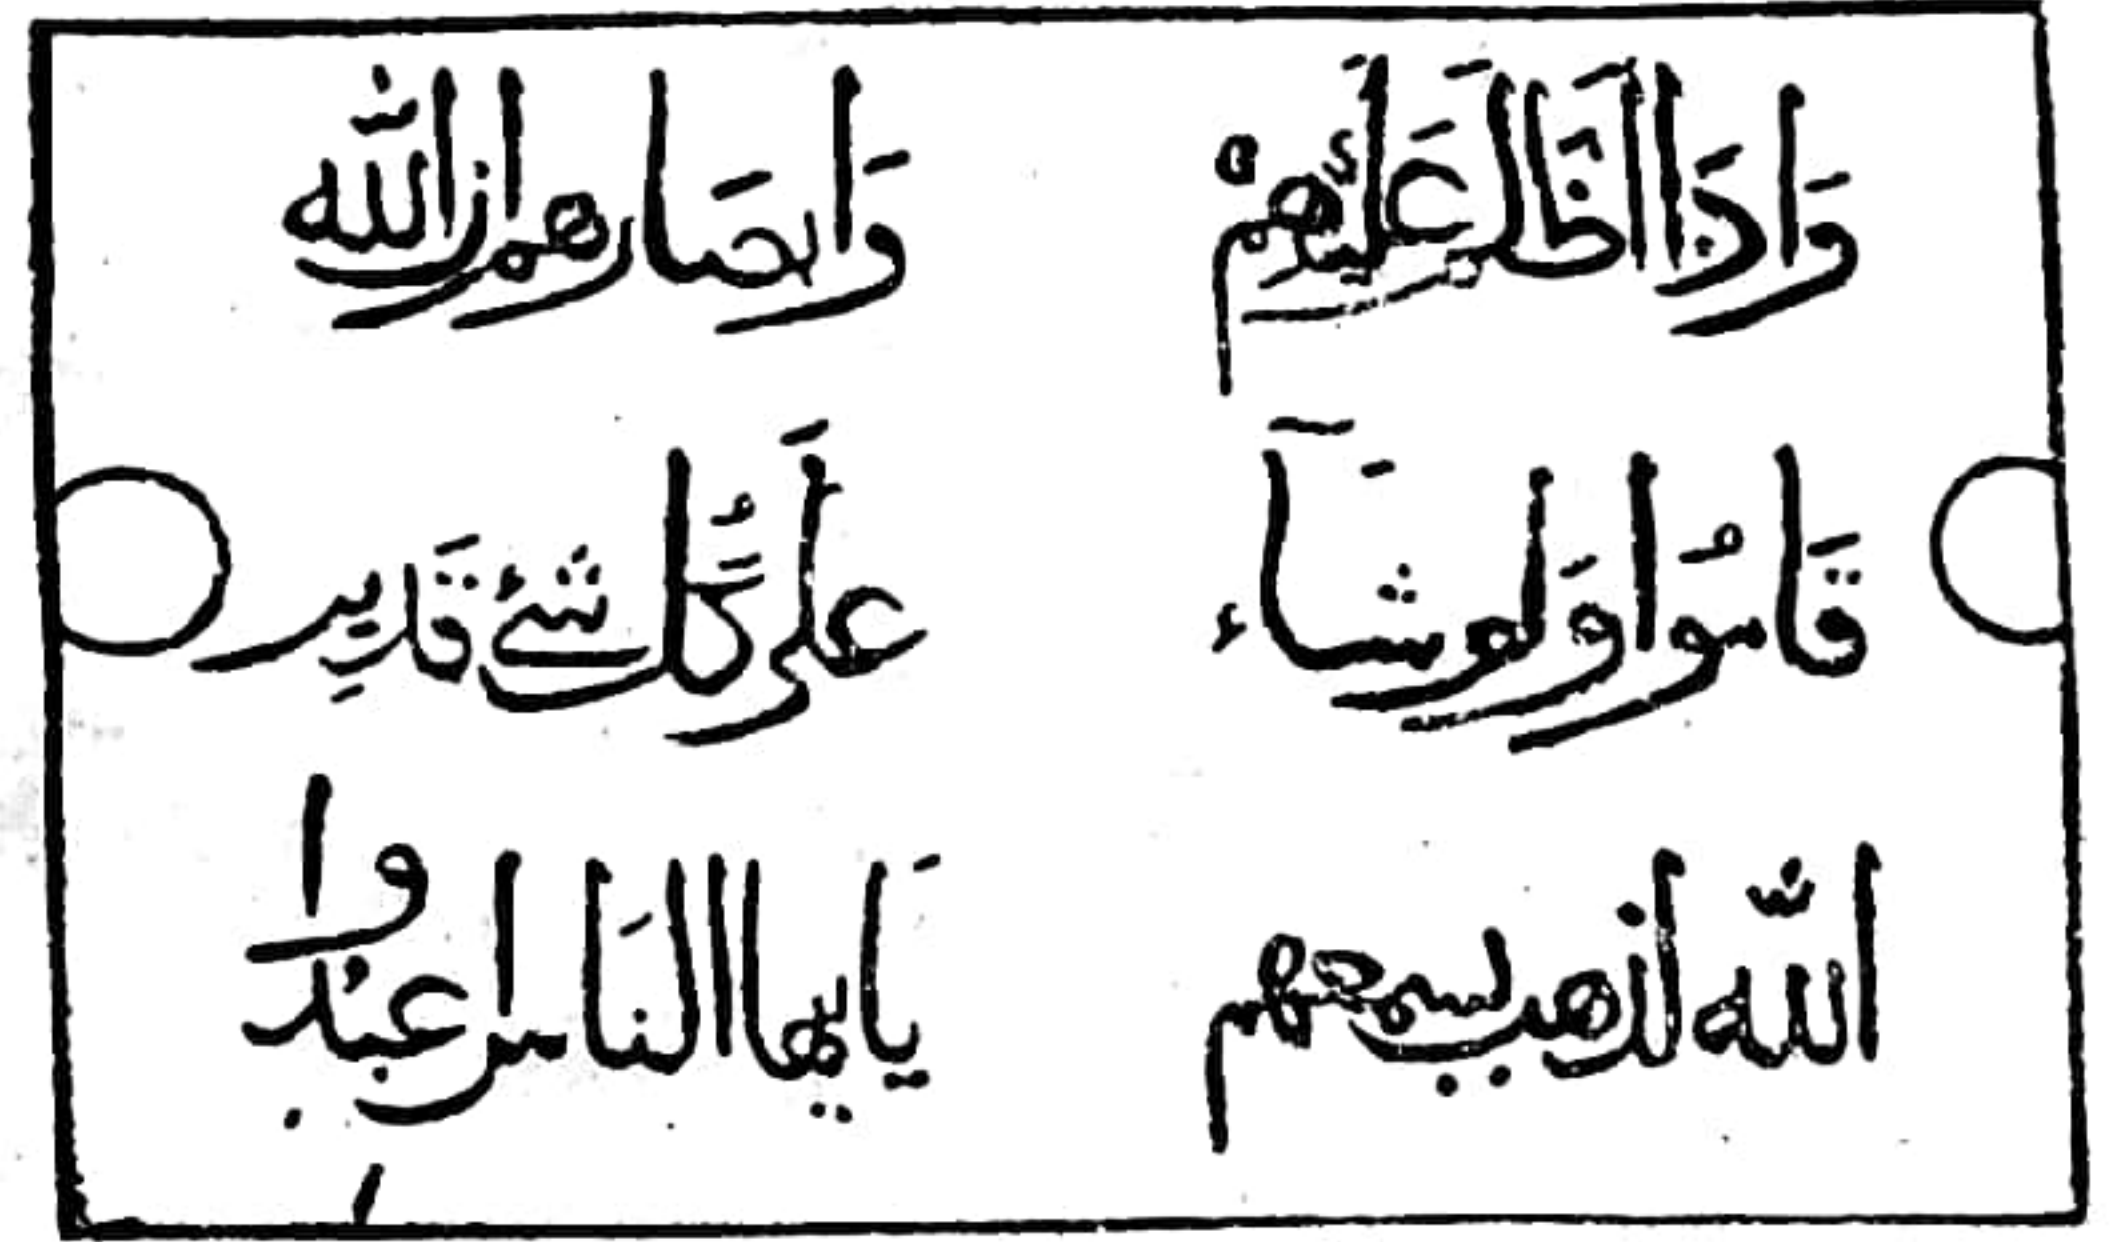 وَاذَا اَظَلَم عَلَيهِمْ
قَامُوا وَلَو شَآء
اللّه لذهب بسمعهم
وَابصَارهم ان اللّه
عَلَى كُلِّ شَئ قَدِير
يَايها النَاس اعبُدوا